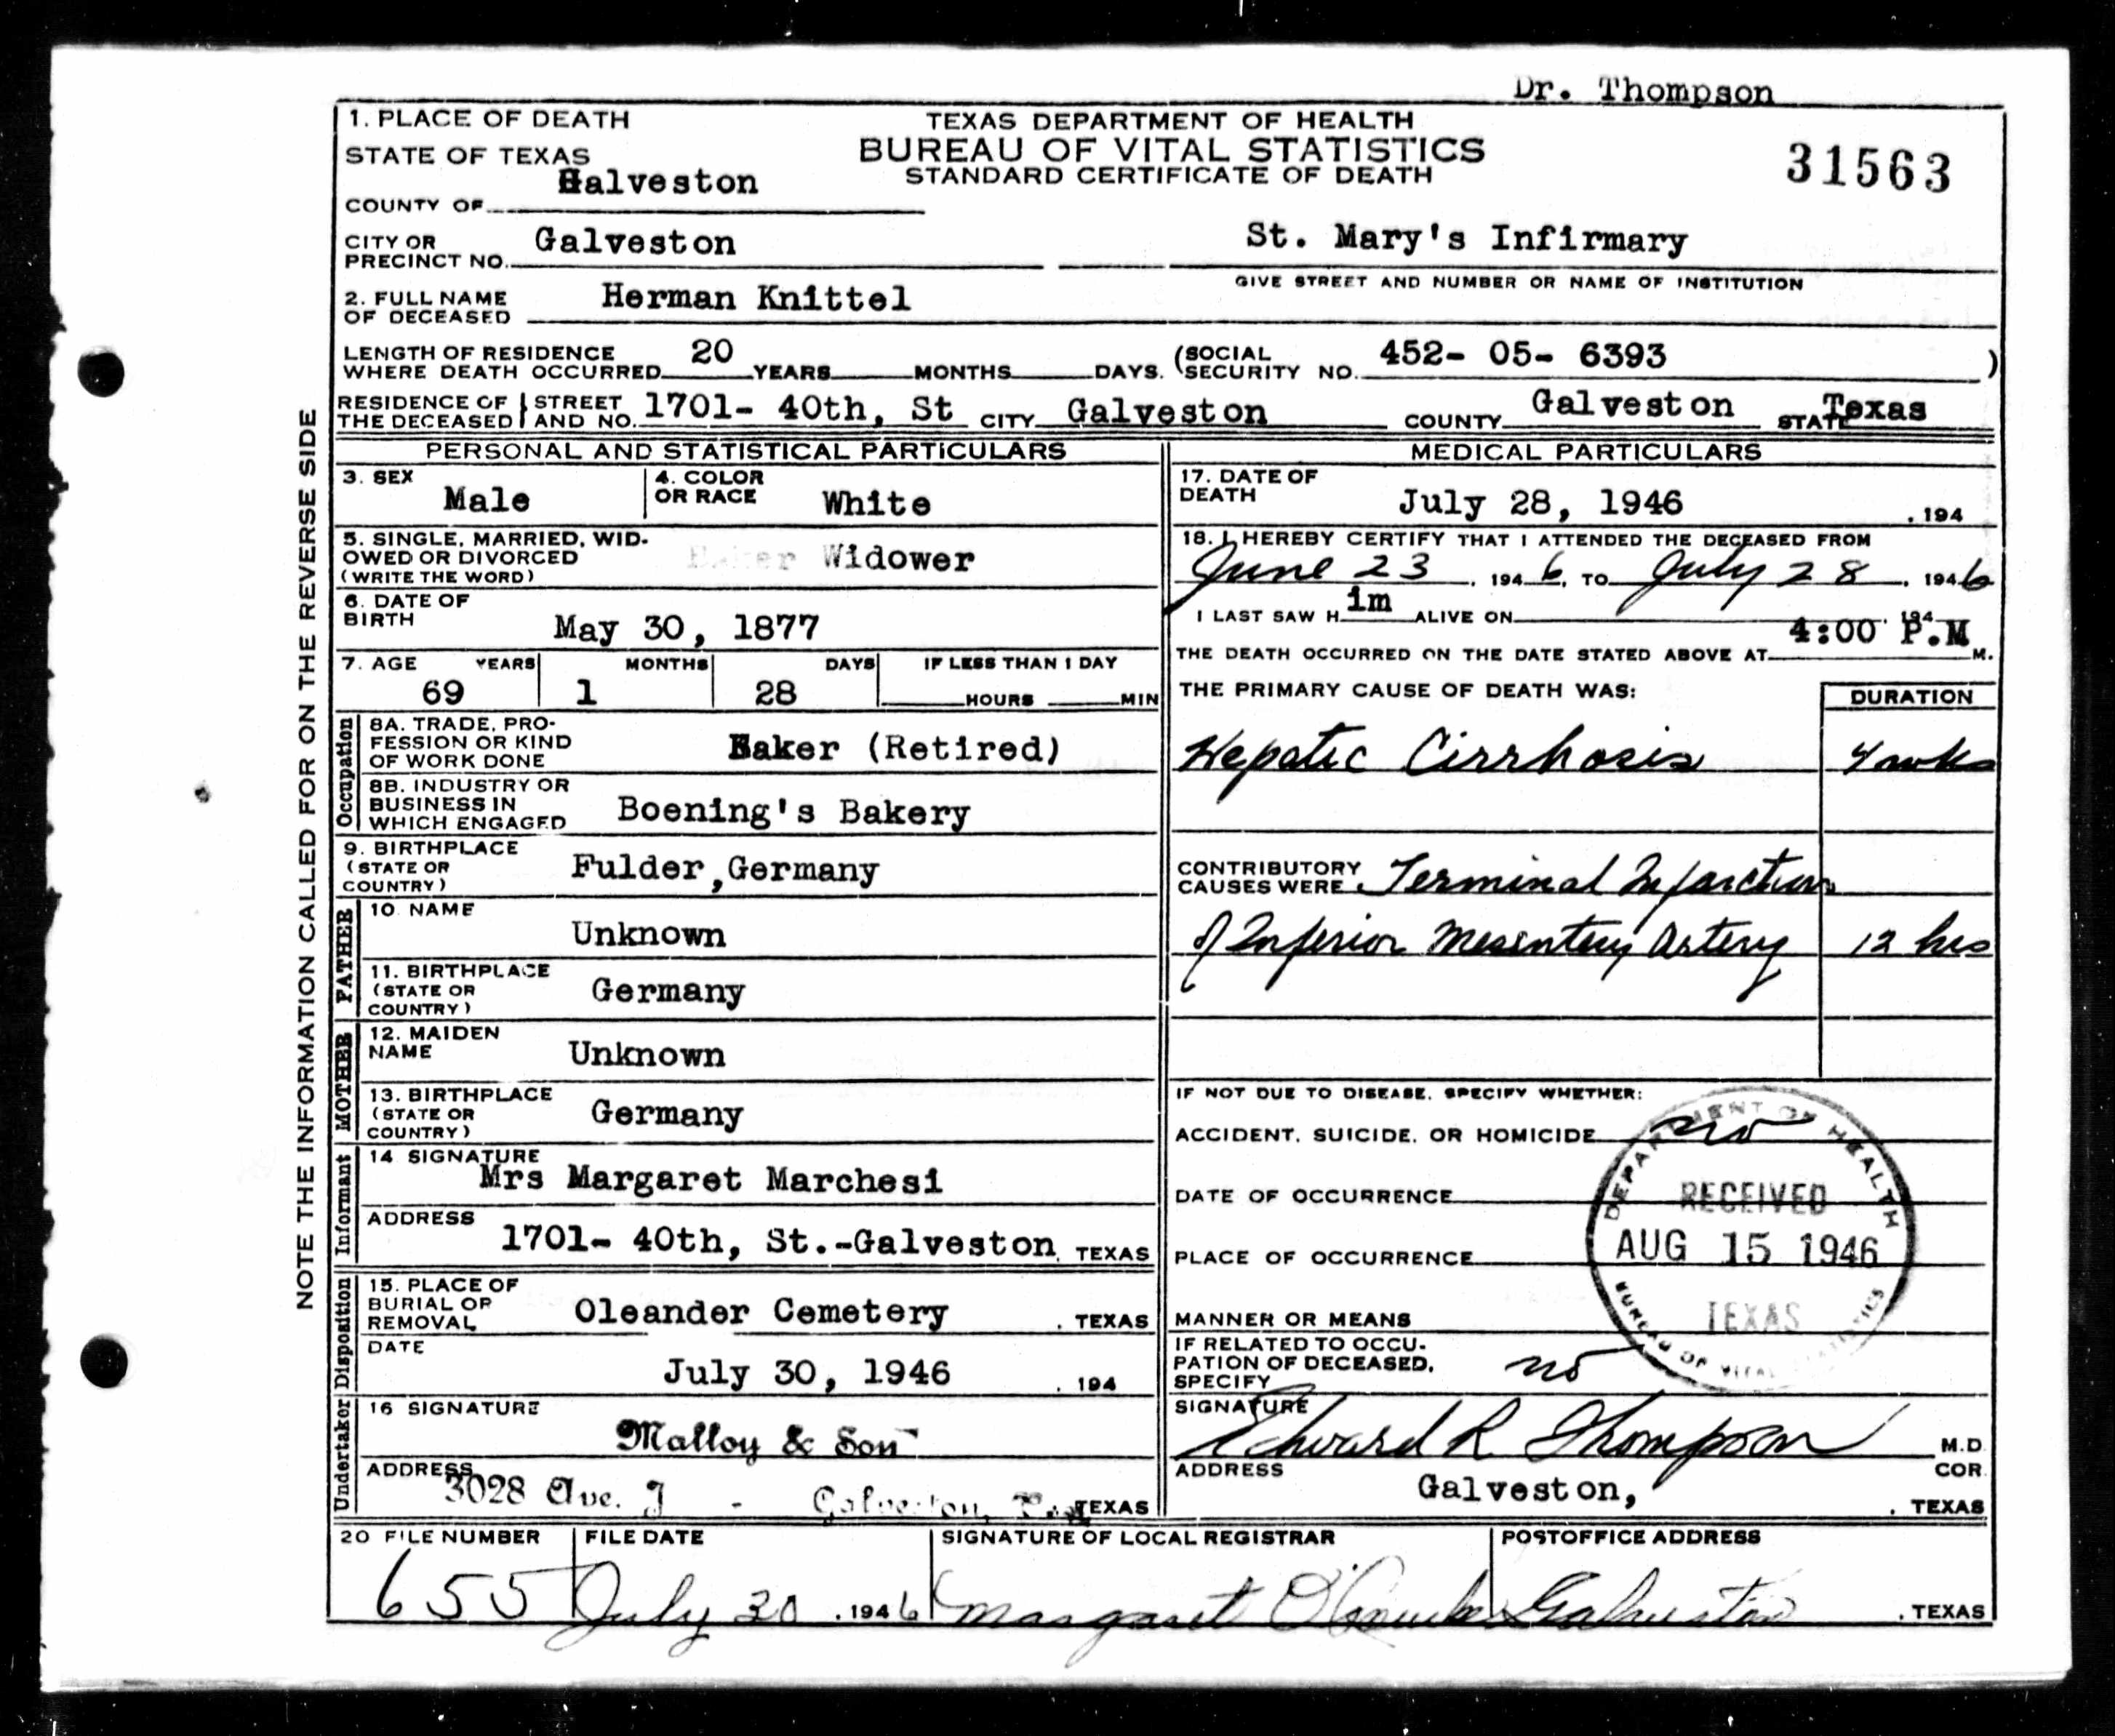 Dr. Thompson
1. PLACE OF DEATH
TEXAS DEPARTMENT OF HEALTH
BUREAU OF VITAL STATISTICS
STANDARD CERTIFICATE OF DEATH
31563
STATE OF TEXAS
COUNTY OF Galveston
CITY OR PRECINCT NO. Galveston
St. Mary's Infirmary
GIVE STREET AND NUMBER OR NAME OF INSTITUTION
2. FULL NAME OF DECEASED Herman Knittel
LENGTH OF RESIDENCE WHERE DEATH OCCURRED 20 YEARS MONTHS DAYS. (SOCIAL SECURITY NO. 452- 05- 6393 )
RESIDENCE OF THE DECEASED STREET AND NO. 1701- 40th, St CITY Galveston COUNTY Galveston STATE Texas
PERSONAL AND STATISTICAL PARTICULARS
3. SEX Male
4. COLOR OR RACE White
5. SINGLE, MARRIED, WIDOWED OR DIVORCED (WRITE THE WORD) Widower
6. DATE OF BIRTH May 30, 1877
7. AGE YEARS 69 MONTHS 1 DAYS 28 IF LESS THAN 1 DAY HOURS MIN
Occupation
8A. TRADE, PROFESSION OR KIND OF WORK DONE Baker (Retired)
8B. INDUSTRY OR BUSINESS IN WHICH ENGAGED Boening's Bakery
9. BIRTHPLACE (STATE OR COUNTRY) Fulder, Germany
FATHER
10 NAME Unknown
11. BIRTHPLACE (STATE OR COUNTRY) Germany
MOTHER
12. MAIDEN NAME Unknown
13. BIRTHPLACE (STATE OR COUNTRY) Germany
Informant
14 SIGNATURE Mrs Margaret Marchesi
ADDRESS 1701- 40th, St.-Galveston, TEXAS
Disposition
15. PLACE OF BURIAL OR REMOVAL Oleander Cemetery , TEXAS
DATE July 30, 1946 , 194
Undertaker
16 SIGNATURE Malloy & Son
ADDRESS 3028 Ave. J - Galveston, TEXAS
MEDICAL PARTICULARS
17. DATE OF DEATH July 28, 1946 , 194
18. I HEREBY CERTIFY THAT I ATTENDED THE DECEASED FROM
June 23 , 1946, TO July 28 , 1946
I LAST SAW H im ALIVE ON , 194
THE DEATH OCCURRED ON THE DATE STATED ABOVE AT 4:00 P.M M.
THE PRIMARY CAUSE OF DEATH WAS: DURATION
Hepatic Cirrhosis 4 wks
CONTRIBUTORY CAUSES WERE Terminal Infarction
of Inferior Mesentery Artery 12 hrs
IF NOT DUE TO DISEASE, SPECIFY WHETHER:
ACCIDENT, SUICIDE, OR HOMICIDE no
DATE OF OCCURRENCE
PLACE OF OCCURRENCE
MANNER OR MEANS
IF RELATED TO OCCUPATION OF DECEASED, SPECIFY no
DEPARTMENT OF HEALTH
RECEIVED
AUG 15 1946
TEXAS
BUREAU OF VITAL STATISTICS
SIGNATURE Edward R Thompson M.D.
COR.
ADDRESS Galveston, , TEXAS
20 FILE NUMBER 655
FILE DATE July 30 , 1946
SIGNATURE OF LOCAL REGISTRAR Margaret
POSTOFFICE ADDRESS Galveston , TEXAS
NOTE THE INFORMATION CALLED FOR ON THE REVERSE SIDE